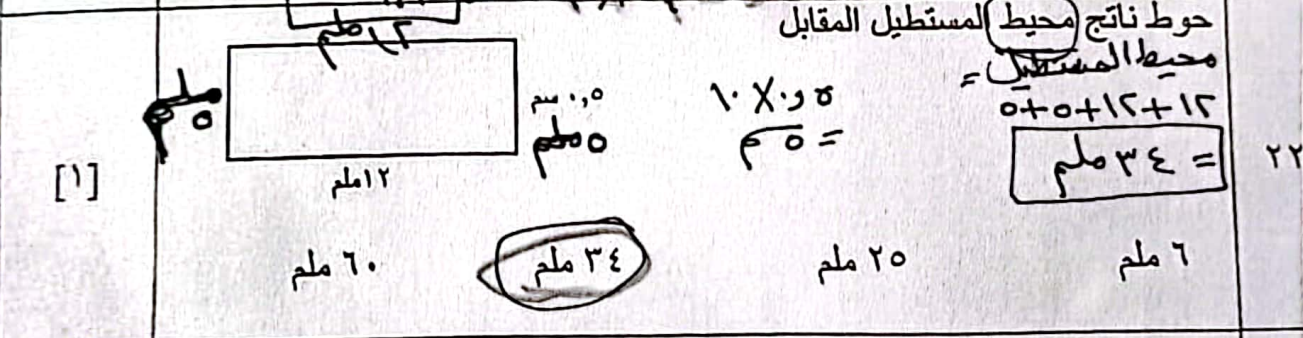 حوط ناتج محيط المستطيل المقابل
محيط المستطيل =
١٢+١٢+٥+٥
= ٣٤ ملم
٠,٥ × ١٠
= ٥ م
١٢ ملم
٠,٥ سم
٥ ملم
٥ ملم
١٢ ملم
٢٢
[١]
٦ ملم
٢٥ ملم
٣٤ ملم
٦٠ ملم